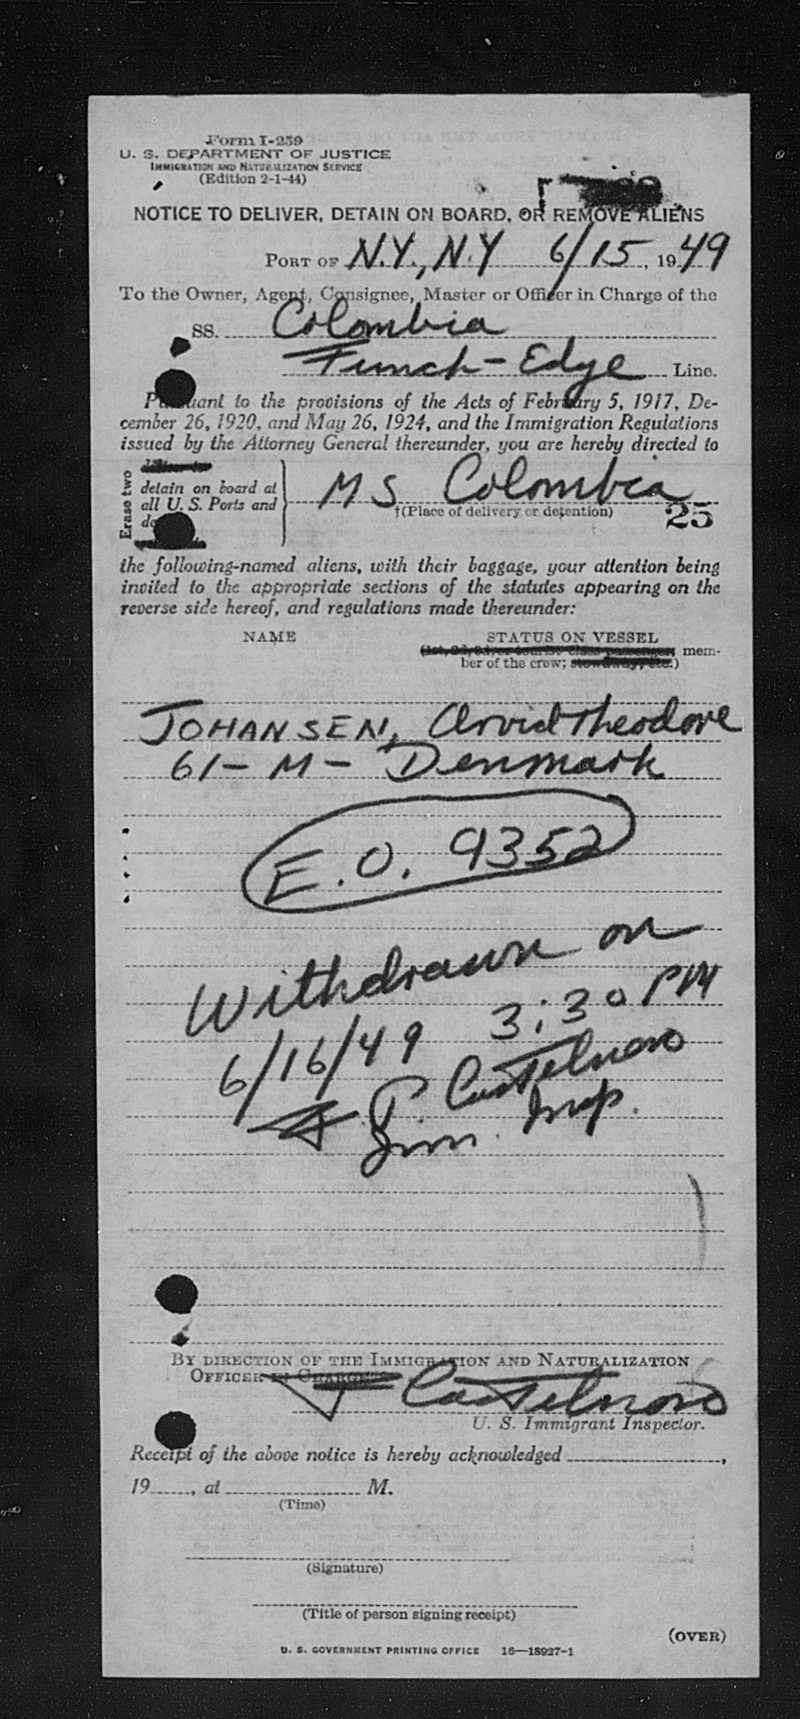 Form I-259
U. S. DEPARTMENT OF JUSTICE
IMMIGRATION AND NATURALIZATION SERVICE
(Edition 2-1-44)
NOTICE TO DELIVER, DETAIN ON BOARD, OR REMOVE ALIENS
PORT OF N.Y., N.Y 6/15, 1949
To the Owner, Agent, Consignee, Master or Officer in Charge of the
SS. Colombia
Funch-Edye Line.
Pursuant to the provisions of the Acts of February 5, 1917, De-
cember 26, 1920, and May 26, 1924, and the Immigration Regulations
issued by the Attorney General thereunder, you are hereby directed to
Erase two
detain on board at
all U. S. Ports and
MS Colombia
†(Place of delivery or detention)
25
the following-named aliens, with their baggage, your attention being
invited to the appropriate sections of the statutes appearing on the
reverse side hereof, and regulations made thereunder:
NAME STATUS ON VESSEL
(1st, 2d, 3d, or tourist class passenger; mem-
ber of the crew; stowaway, etc.)
JOHANSEN, Arvid Theodore
61-M- Denmark
E.O. 9352
Withdrawn on
6/16/49 3:30 PM
P. Castelnovo
Imm. Insp.
BY DIRECTION OF THE IMMIGRATION AND NATURALIZATION
OFFICER IN CHARGE
Castelnovo
U. S. Immigrant Inspector.
Receipt of the above notice is hereby acknowledged ,
19 , at M.
(Time)
(Signature)
(Title of person signing receipt)
(OVER)
U. S. GOVERNMENT PRINTING OFFICE 16—18927-1